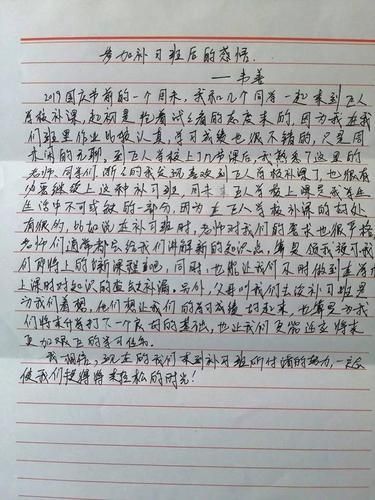 参加补习班后的感悟.
——韦善
2019国庆节前的一个周末,我和几个同学一起来到飞人
学校补课,起初是抱着试试看的态度来的,因为我在我
们班里作业比较认真,学习成绩也很不错的,只是周
末闲的无聊,到飞人学校上了几节课后,我熟悉了这里的
老师、同学们,渐渐的我发现喜欢到飞人学校补课了,也很有
必要继续上这种补习班,周末来飞人学校上课是我学生
生活中不可或缺的一部分,因为在飞人学校补课的好处
有很多的,比如说在补习班时,老师对我们的要求也很严格
老师们通常都会给我们讲解新的知识点,算是领我预习我
们即将上的新课程主吧,同时,也能让我们不时做到在学校
上课时对知识的查缺补漏。另外,父母叫我们去读补习班是
为我们着想,他们想让我们的学习成绩好起来,也算是为我
们将来升学打下一个良好的基础,也让我们更能适应将来
更加艰巨的学习任务。
我相信,现在的我们来到补习班所付诸的努力,一定会
使我们赶得将来轻松的时光!